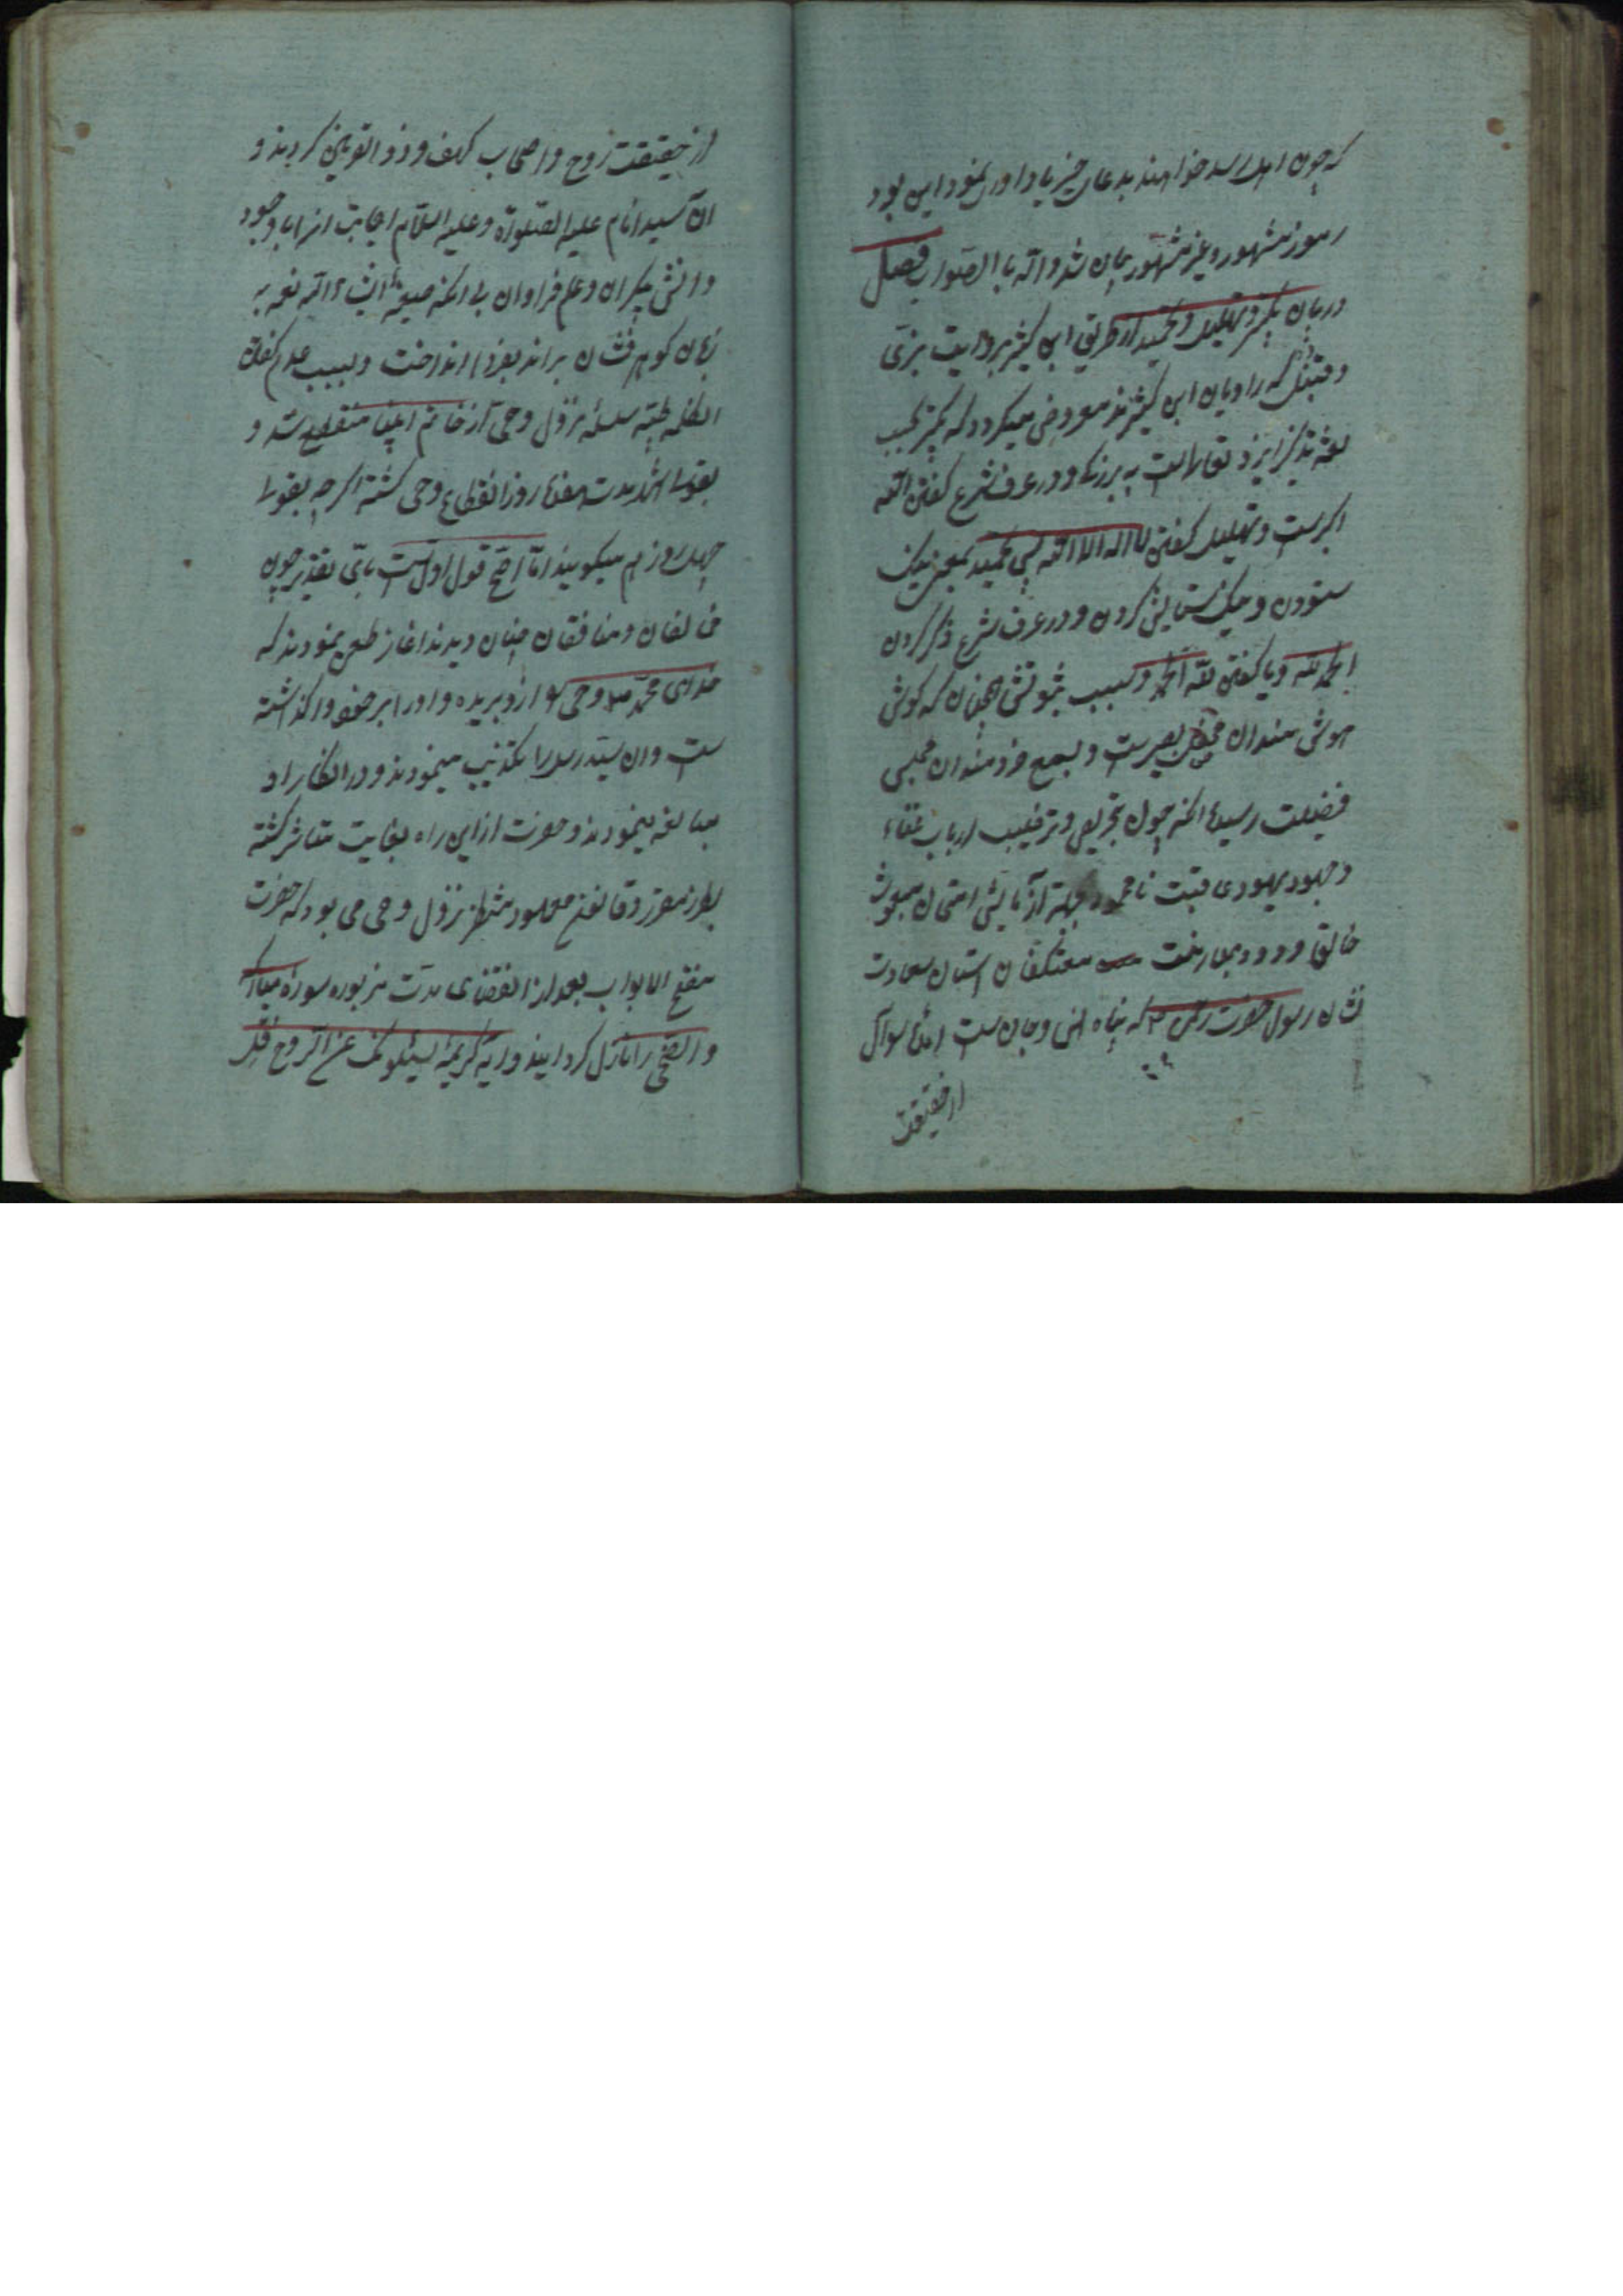 که چون اهل رسد خواهند بدعای خیر یاد اور نمود این بود
رموز مشهور و غیر مشهور بیان شد والله بالصواب فصل
در بیان تکبیر و تهلیل و تحمید از طریق ابن کثیر بروایت بزی
و قنبل که راویان ابن کثیرند معروض میکردد که تکبیر بحسب
لغة تذکر ایزد تعالی است به بزرکی و در عرف شرع کفتن الله
اکبرست و تهلیل کفتن لا اله الا الله پس تحمید بمعنی نیک
ستودن و نیک ستایش کردن و در عرف شرع ذکر کردن
الحمد لله و یا کفتن لله الحمد و سبب ثبوتش همچنان که کوش
هوش مندان محفل بصیرست و بسمع خردمندان مجلس
فضیلت رسیده انکه چون تحریص و ترغیب ارباب
و جهود یهودی نامحمود بجهة آزمایش امتحان مبعوث
خالق ودود بمعارضت معتکفان استان سعادت
نشان رسول حضرت رحمن که پناه انس و جان ست امده سوال
از حقیقت
از حقیقت روح و اصحاب کهف و ذو القرنین کردند و
آن سید انام علیه الصلوة و علیه السلام اجابت انرا با وجود
دانش بیکران و علم فراوان بی انکه صیغهٔ انشاء الله تعه به
زبان کوهر فشان براند بفردا انداخت و بسبب عدم کفتن
ان کلمه طیبه سلسله نزول وحی از خاتم انبیا منقطع شد و
بقول اشهر مدت هفده روز انقطاع وحی کشته اکر چه بقول
چهل روز هم میکویند اما اصح قول اول ست بای تقدیر چون
مخالفان و منافقان چنان دیدند اغاز طعن نمودند که
خدای محمد وحی را از و بریده و اورا بر خود واکذاشته
ست و ان سید رسل را تکذیب مینمودند و در انکار او
مبالغه مینمودند و حضرت از این راه بغایت متاثر کشته
بطرز مقرر و قانون معهود منتظر نزول وحی می بود که حضرت
مفتح الابواب بعد از انقضای مدت مزبوره سورهٔ مبارکه
والضحی را نازل کردانید و ایه کریمهٔ یسئلونک عن الروح قل